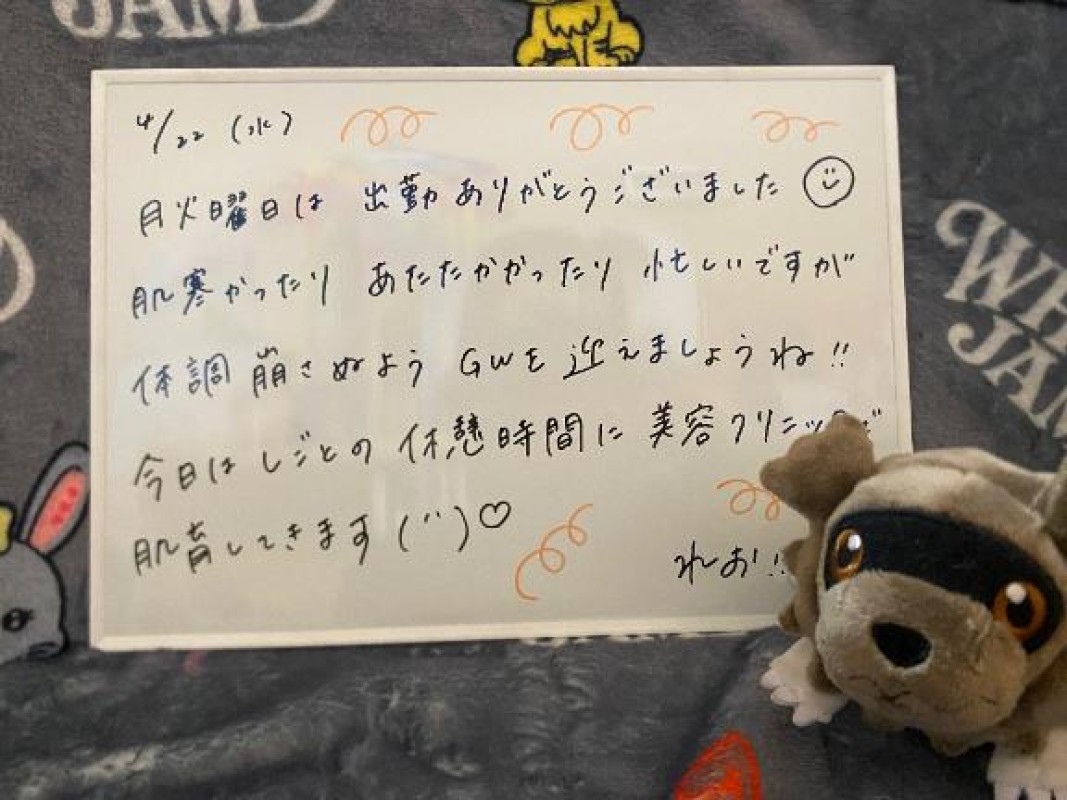 JAM
4/22 (水)
月火曜日は 出勤ありがとうございました
肌寒かったり あたたかかったり 忙しいですが
体調 崩さぬよう GWを 迎えましょうね!!
今日は しごとの 休憩時間に 美容クリニックで
肌育してきます (¨)♡
れお!!
WH
JAM